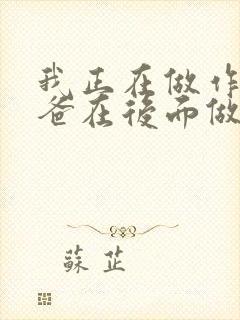 我正在做作
爸在後面做
蘇芷